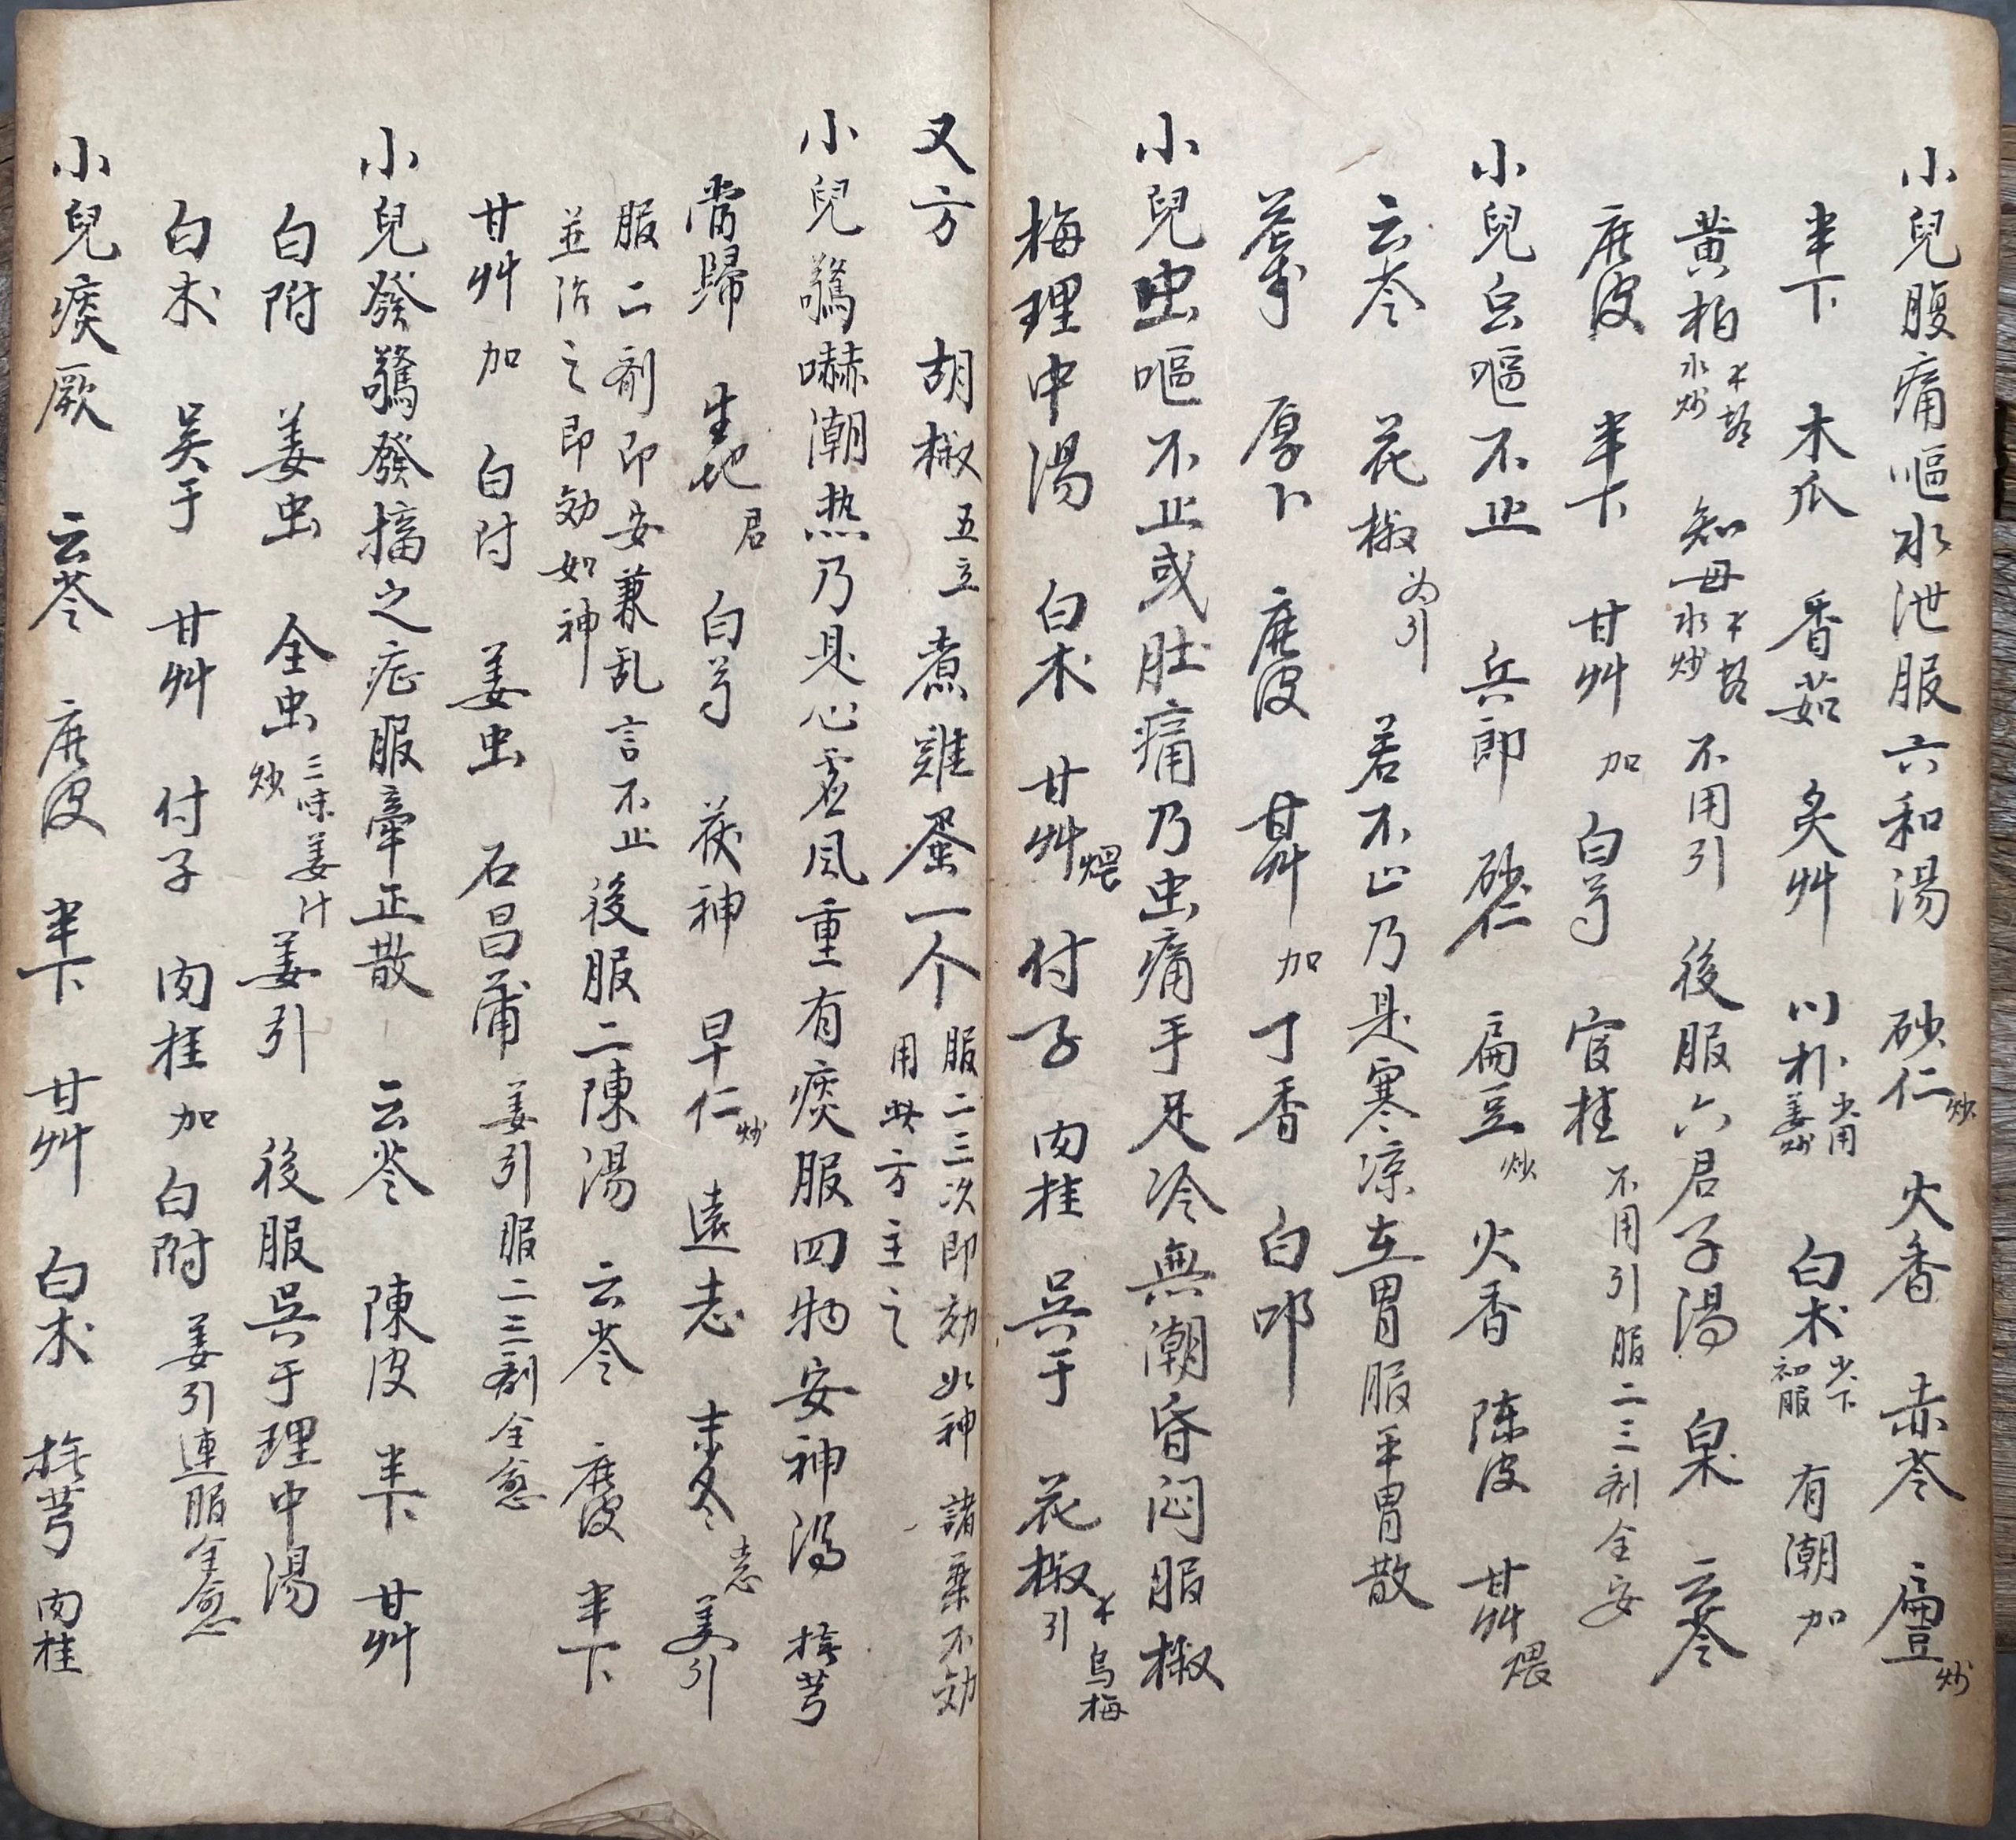 小兒腹痛嘔水泄服六和湯 砂仁炒 火香 赤苓 扁豆炒
半下 木瓜 香茹 炙艸 川朴少用姜炒 白术少下初服 有潮加
黃柏水炒 知母水炒 不用引 後服六君子湯 云苓
皮 半下 甘艸 加 白芍 官桂 不用引服二三剂全安
小兒嘔不止 兵郎 砂仁 扁豆炒 火香 陈皮 甘艸煨
云苓 花椒为引 若不止乃是寒凉在胃服平胃散
苍术 厚卜 皮 甘艸 加 丁香 白叩
小兒虫嘔不止或肚痛乃虫痛手足冷無潮昏闷服椒
梅理中湯 白术 甘艸煨 付子 肉桂 吳于 花椒 烏梅引
又方 胡椒五立 煮雞蛋一个 服二三次即効如神 諸藥不効用此方主之
小兒驚嚇潮热乃是心虚风重有痰服四物安神湯 撫芎
當歸 生地君 白芍 茯神 早仁炒 遠志 麦冬去心 姜引
服二剂即安兼乱言不止後服二陳湯 云苓 皮 半下
並治之即効如神
甘艸 加 白付 姜虫 石昌蒲 姜引服二三剂全愈
小兒發驚發搐之症服牽正散 云苓 陳皮 半下 甘艸
白附 姜虫 全虫三味姜汁炒 姜引 後服吳于理中湯
白术 吴于 甘艸 付子 肉桂 加 白附 姜引連服全愈
小兒痰厥 云苓 皮 半下 甘艸 白术 撫芎 肉桂